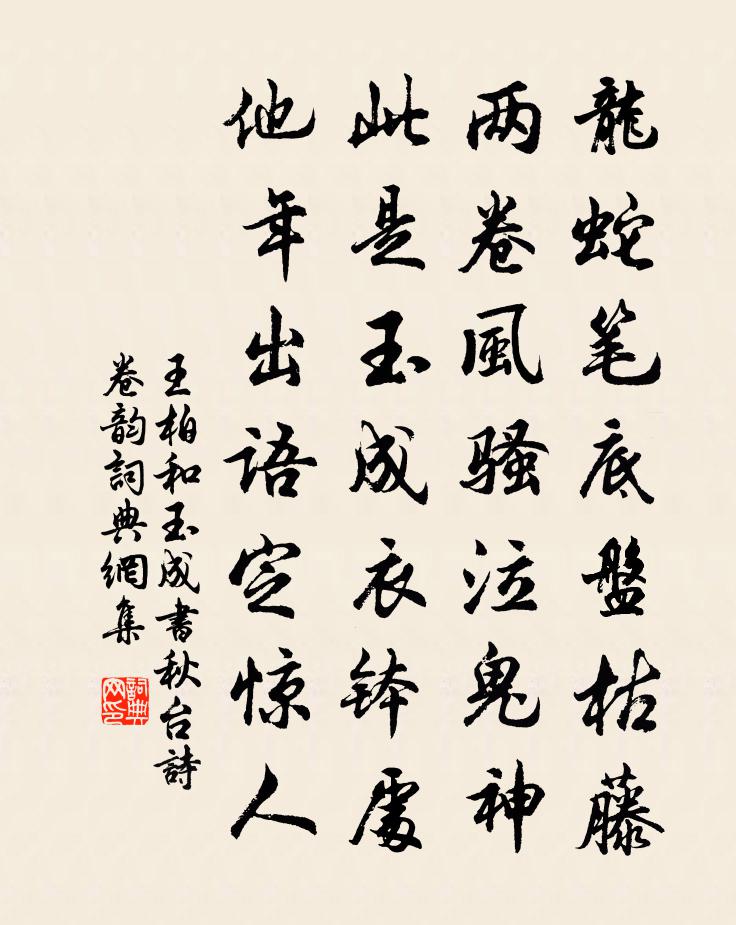 龍蛇笔底盤枯藤
两卷風騷泣鬼神
此是玉成衣鉢處
他年出語定惊人
王柏和玉成書秋台詩
卷韵詞典網集
詞典网印